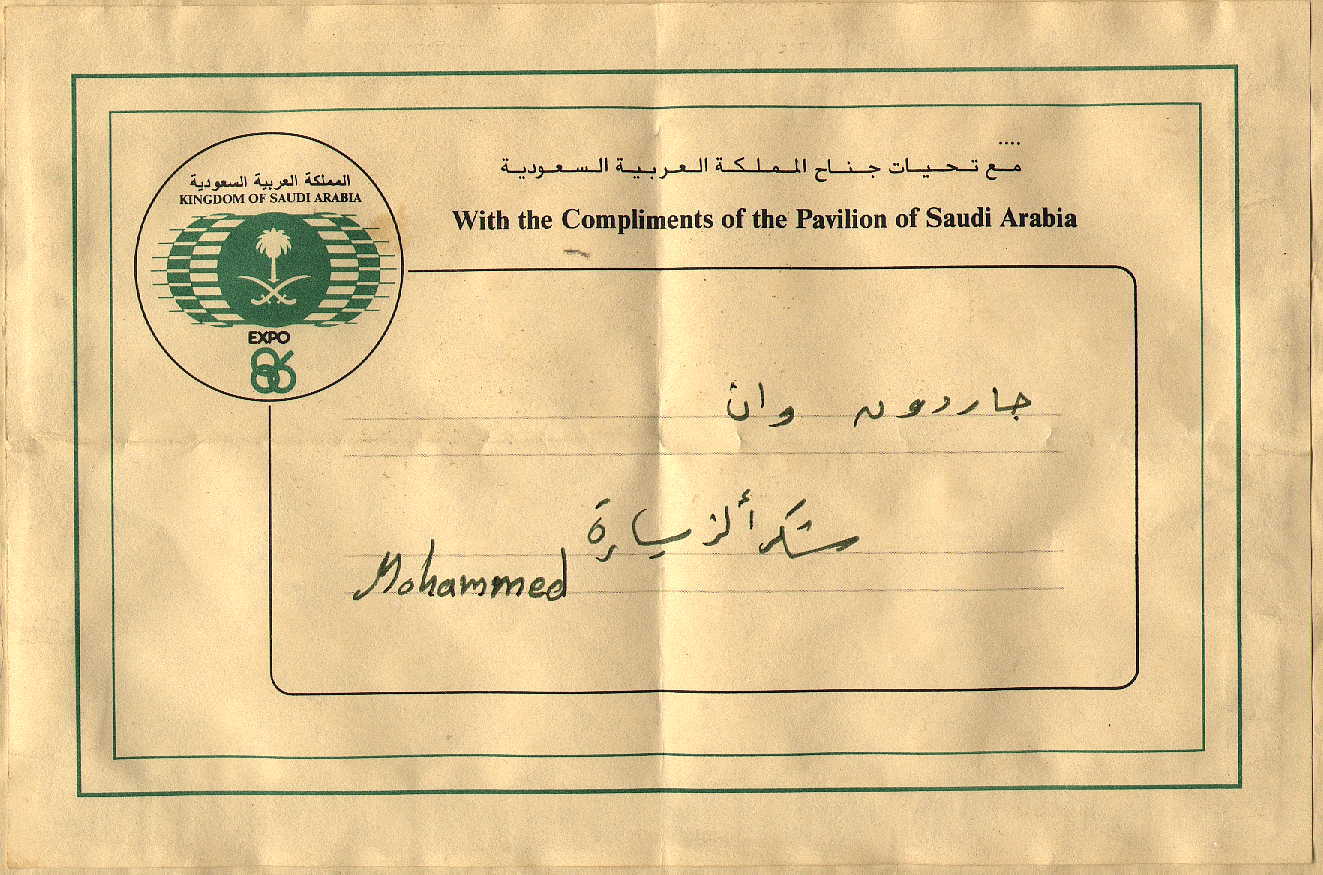 المملكة العربية السعودية
KINGDOM OF SAUDI ARABIA
EXPO
86
مع تحيات جناح المملكة العربية السعودية
With the Compliments of the Pavilion of Saudi Arabia
جاردون وان
شكراً لزيارة
Mohammed